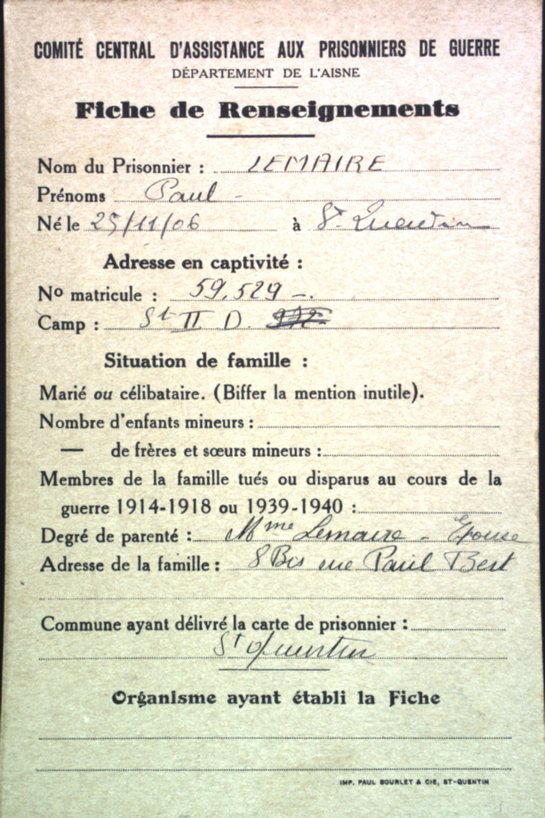 COMITÉ CENTRAL D'ASSISTANCE AUX PRISONNIERS DE GUERRE
DÉPARTEMENT DE L'AISNE
Fiche de Renseignements
Nom du Prisonnier : LEMAIRE
Prénoms Paul -
Né le 25/11/06 à St. Quentin
Adresse en captivité :
No matricule : 59.529 -.
Camp : St II D.
Situation de famille :
Marié ou célibataire. (Biffer la mention inutile).
Nombre d'enfants mineurs :
— de frères et sœurs mineurs :
Membres de la famille tués ou disparus au cours de la
guerre 1914-1918 ou 1939-1940 :
Degré de parenté : Mme Lemaire - Epouse
Adresse de la famille : 8 Bis rue Paul Bert
Commune ayant délivré la carte de prisonnier :
St Quentin
Organisme ayant établi la Fiche
IMP. PAUL BOURLET & CIE, ST-QUENTIN